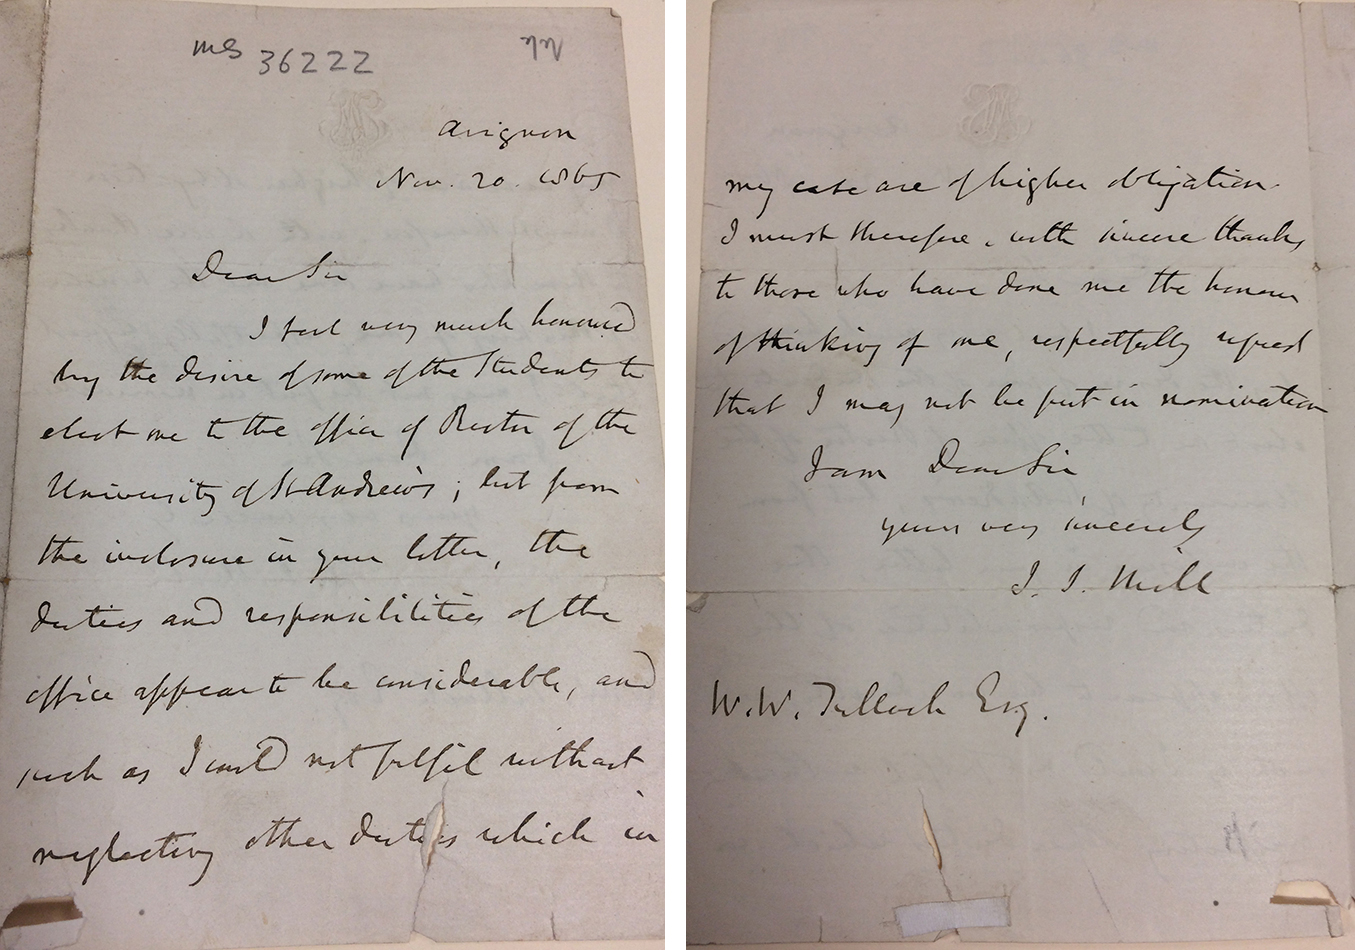 ms 36222
Avignon
Nov. 20. 1865
Dear Sir
I feel very much honoured
by the desire of some of the Students to
elect me to the office of Rector of the
University of St Andrews; but from
the inclosure in your letter, the
duties and responsibilities of the
office appear to be considerable, and
such as I could not fulfil without
neglecting other duties which in
my case are of higher obligation.
I must therefore, with sincere thanks
to those who have done me the honour
of thinking of me, respectfully request
that I may not be put in nomination
I am Dear Sir
yours very sincerely
J. S. Mill
W.W. Tulloch Esq.